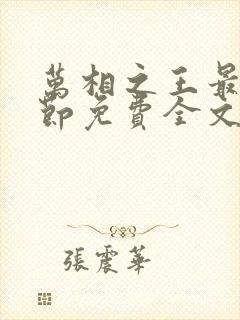 萬相之王最
節免費全文
張震華